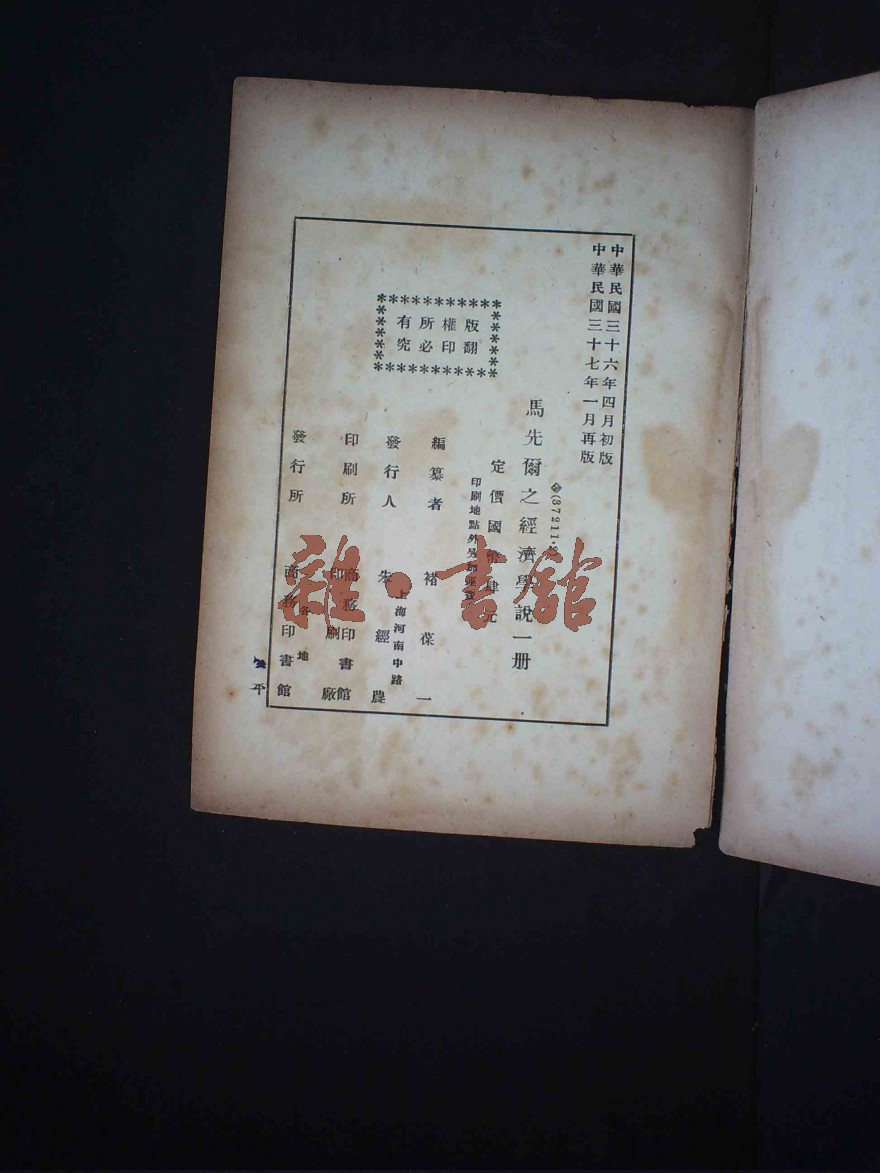 中華民國三十六年四月初版
中華民國三十七年一月再版
(37211·
馬先爾之經濟學說一册
定價國幣肆元
印刷地點外另加
版權所有
翻印必究
編纂者 褚葆一
發行人 朱經農
上海河南中路
印刷所 商務印書館
印刷廠
發行所 各地
商務印書館
平
雜·書館